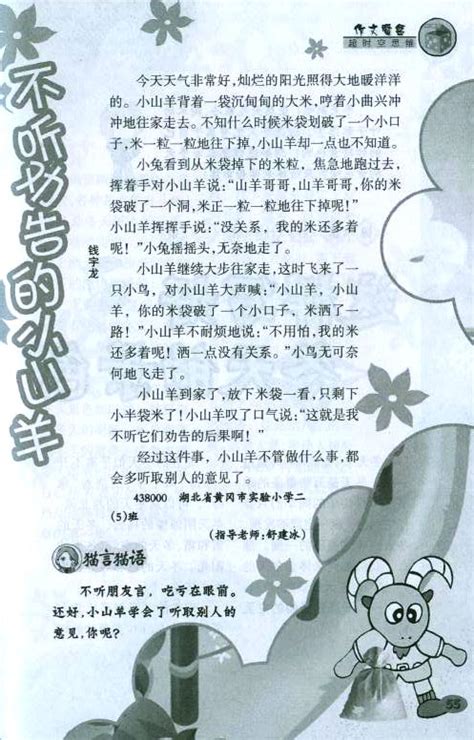 作文魔窗
超时空思维
不听劝告的小山羊
钱宇龙
今天天气非常好,灿烂的阳光照得大地暖洋洋
的。小山羊背着一袋沉甸甸的大米,哼着小曲兴冲
冲地往家走去。不知什么时候米袋划破了一个小口
子,米一粒一粒地往下掉,小山羊却一点也不知道。
小兔看到从米袋掉下的米粒,焦急地跑过去,
挥着手对小山羊说:“山羊哥哥,山羊哥哥,你的米
袋破了一个洞,米正一粒一粒地往下掉呢!”
小山羊挥挥手说:“没关系,我的米还多着
呢!”小兔摇摇头,无奈地走了。
小山羊继续大步往家走,这时飞来了一
只小鸟,对小山羊大声喊:“小山羊,小山
羊,你的米袋破了一个小口子,米洒了一
路!”小山羊不耐烦地说:“不用怕,我的米
还多着呢!洒一点没有关系。”小鸟无可奈
何地飞走了。
小山羊到家了,放下米袋一看,只剩下
小半袋米了!小山羊叹了口气说:“这就是我
不听它们劝告的后果啊!”
经过这件事,小山羊不管做什么事,都
会多听取别人的意见了。
438000 湖北省黄冈市实验小学二
(5)班
(指导老师:舒建冰)
猫言猫语
不听朋友言,吃亏在眼前。
还好,小山羊学会了听取别人的
意见,你呢?
55